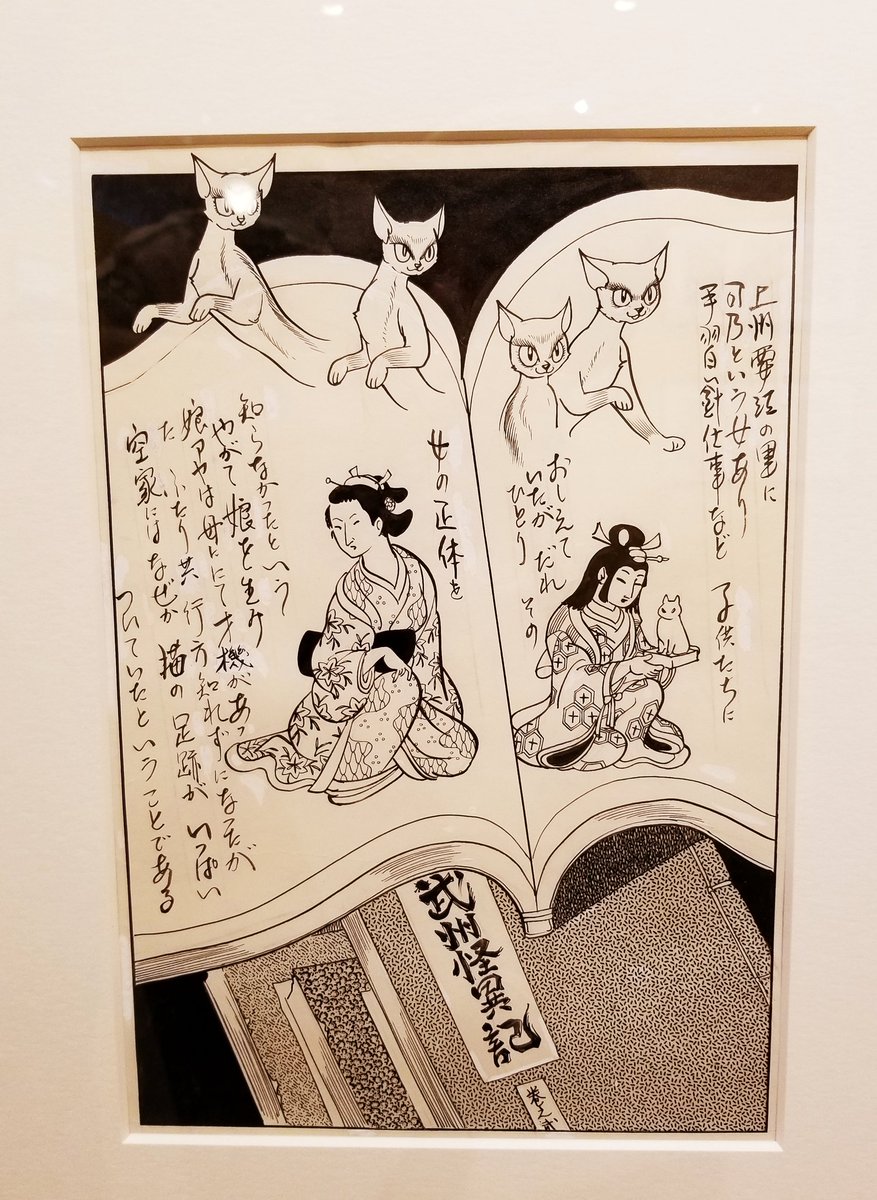 上州 江の里に
可乃という女あり
手習い針仕事など 子供たちに
おしえて
いたが だれ
ひとり その
女の正体を
知らなかったという
やがて娘を生み
娘アヤは母ににて才機があっ
た ふたり共 行方知れずになったが
空家にはなぜか猫の足跡がいっぱい
ついていたということである
武州怪異記
巻之